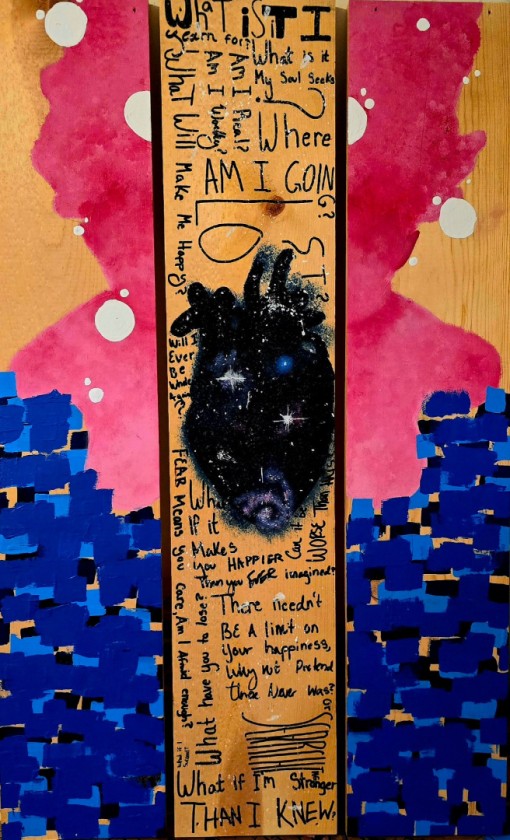 What iS iT I
yearn for?
What is it
My Soul Seeks
?
Am I Real?
Am I Worthy?
What Will Make Me Happy?
Where
AM I GOING?
LOST?
Will I
Ever
Be
Whole
Again
FEAR Means you care, Am I Afraid enough?
What
If it
Makes
you HAPPIER
Than you EVER imagined?
Can it be
WORSE Than
What have you to lose?
There needn't
BE A limit on
your happiness,
Why not Pretend
there Never Was?
or
What if I'm Stronger
THAN I KNEW?